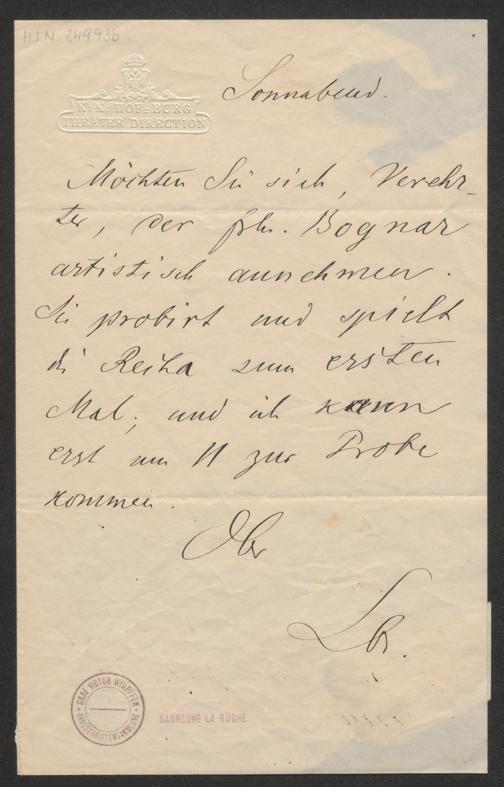 H.I.N. 249936
K. K. HOF-BURG
THEATER DIRECTION
Sonnabend.
Möchten Sie sich, Verehr-
ter, der frln. Bognar
artistisch annehmen.
Sie probirt und spielt
die Reiha zum ersten
Mal; und ich kann
erst um 11 zur Probe
kommen.
Ihr
Lb.
GRAF VICTOR WIMPFFEN
HANDSCHRIFTENSAMMLUNG
SAMMLUNG LA ROCHE